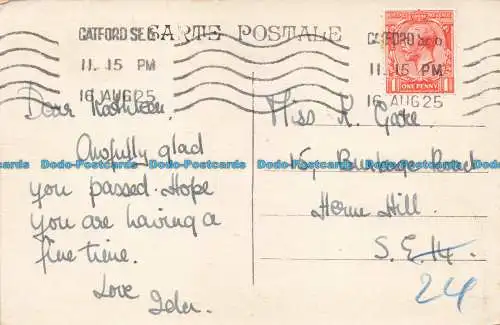 CATFORD S.E.6
11. 15 PM
16 AUG 25
CARTE POSTALE
CATFORD S.E.6
11. 15 PM
16 AUG 25
ONE PENNY
Dear Kathleen.
Awfully glad
you passed. Hope
you are having a
fine time.
Love
Miss K. Gake
15, Burbage Road
Herne Hill.
S.E.14.
24
Dodo-Postcards Dodo-Postcards Dodo-Postcards Dodo-Postcards Dodo-Postcards